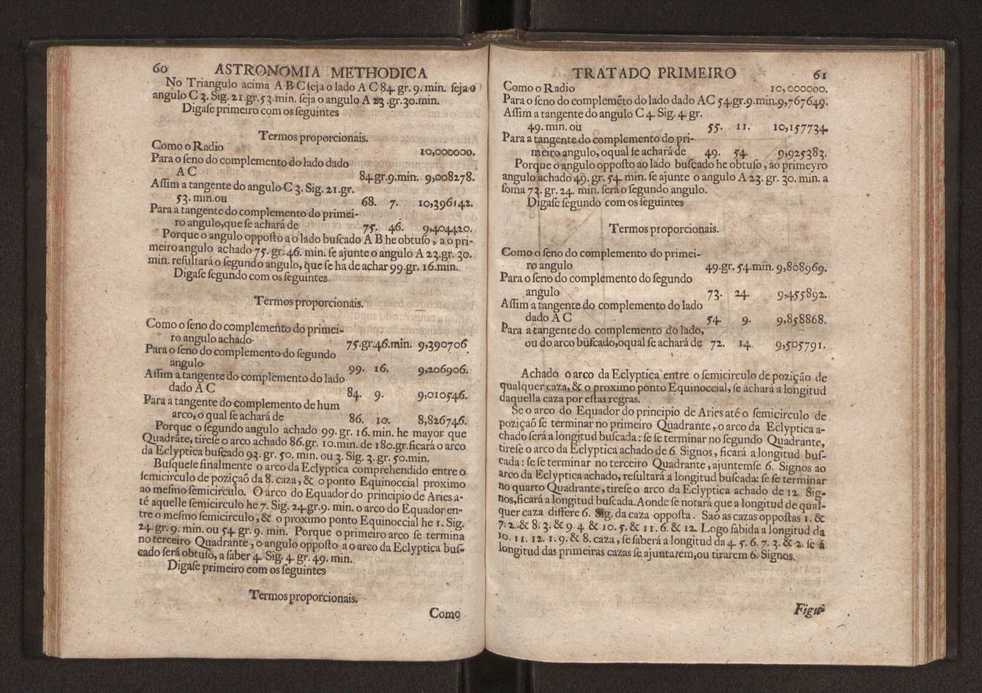 60 ASTRONOMIA METHODICA
No Triangulo acima A B C ſeja o lado A C 84. gr. 9. min. ſeja o
angulo C 3. Sig. 21. gr. 53. min. ſeja o angulo A 23. gr. 30. min.
Digaſe primeiro com os ſeguintes
Termos proporcionais.
Como o Radio 10,000000.
Para o ſeno do complemento do lado dado
A C 84. gr. 9. min. 9,008278.
Aſſim a tangente do angulo C 3. Sig. 21. gr.
53. min. ou 68. 7. 10,396142.
Para a tangente do complemento do primei-
ro angulo, que ſe achará de 75. 46. 9,404420.
Porque o angulo oppoſto a o lado buſcado A B he obtuſo, a o pri-
meiro angulo achado 75. gr. 46. min. ſe ajunte o angulo A 23. gr. 30.
min. reſultará o ſegundo angulo, que ſe ha de achar 99. gr. 16. min.
Digaſe ſegundo com os ſeguintes
Termos proporcionais.
Como o ſeno do complemento do primei-
ro angulo achado 75. gr. 46. min. 9,390706
Para o ſeno do complemento do ſegundo
angulo 99. 16. 9,206906.
Aſſim a tangente do complemento do lado
dado A C 84. 9. 9,010546.
Para a tangente do complemento de hum
arco, o qual ſe achará de 86. 10. 8,826746.
Porque o ſegundo angulo achado 99. gr. 16. min. he mayor que
Quadrãte, tireſe o arco achado 86. gr. 10. min. de 180. gr. ficará o arco
da Eclyptica buſcado 93. gr. 50. min. ou 3. Sig. 3. gr. 50. min.
Buſqueſe finalmente o arco da Eclyptica comprehendido entre o
ſemicirculo de pozição da 8. caza, & o ponto Equinoccial proximo
ao meſmo ſemicirculo. O arco do Equador do principio de Aries a-
té aquelle ſemicirculo he 7. Sig. 24. gr. 9. min. o arco do Equador en-
tre o meſmo ſemicirculo, & o proximo ponto Equinoccial he 1. Sig.
24. gr. 9. min. ou 54. gr. 9. min. Porque o primeiro arco ſe termina
no terceiro Quadrante, o angulo oppoſto a o arco da Eclyptica buſ-
cado ſerá obtuſo, a ſaber 4. Sig. 4. gr. 49. min.
Digaſe primeiro com os ſeguintes
Termos proporcionais.
Como
TRATADO PRIMEIRO 61
Como o Radio 10,000000.
Para o ſeno do complemẽto do lado dado AC 54. gr. 9. min. 9,767649.
Aſſim a tangente do angulo C 4. Sig. 4. gr.
49. min. ou 55. 11. 10,157734.
Para a tangente do complemento do pri-
meiro angulo, o qual ſe achará de 49. 54. 9,925383.
Porque o angulo oppoſto ao lado buſcado he obtuſo, ao primeyro
angulo achado 49. gr. 54. min. ſe ajunte o angulo A 23. gr. 30. min. a
ſoma 73. gr. 24. min. ſerá o ſegundo angulo.
Digaſe ſegundo com os ſeguintes
Termos proporcionais.
Como o ſeno do complemento do primei-
ro angulo 49. gr. 54. min. 9,808969.
Para o ſeno do complemento do ſegundo
angulo 73. 24. 9,455892.
Aſſim a tangente do complemento do lado
dado A C 54. 9. 9,858868.
Para a tangente do complemento do lado,
ou do arco buſcado, o qual ſe achará de 72. 14. 9,505791.
Achado o arco da Eclyptica entre o ſemicirculo de pozição de
qualquer caza, & o proximo ponto Equinoccial, ſe achará a longitud
daquella caza por eſtas regras.
Se o arco do Equador do principio de Aries até o ſemicirculo de
poziçaõ ſe terminar no primeiro Quadrante, o arco da Eclyptica a-
chado ſerá a longitud buſcada: ſe ſe terminar no ſegundo Quadrante,
tireſe o arco da Eclyptica achado de 6. Signos, ficará a longitud buſ-
cada: ſe ſe terminar no terceiro Quadrante, ajuntemſe 6. Signos ao
arco da Eclyptica achado, reſultará a longitud buſcada: ſe ſe terminar
no quarto Quadrante, tireſe o arco da Eclyptica achado de 12. Sig-
nos, ficará a longitud buſcada. Aonde ſe notará que a longitud de qual-
quer caza differe 6. Sig. da caza oppoſta. Saõ as cazas oppoſtas 1. &
7. 2. & 8. 3. & 9. 4. & 10. 5. & 11. 6. & 12. Logo ſabida a longitud da
10. 11. 12. 1. 9. & 8. caza, ſe ſaberá a longitud da 4. 5. 6. 7. 3. & 2. ſe á
longitud das primeiras cazas ſe ajuntarem, ou tirarem 6. Signos.